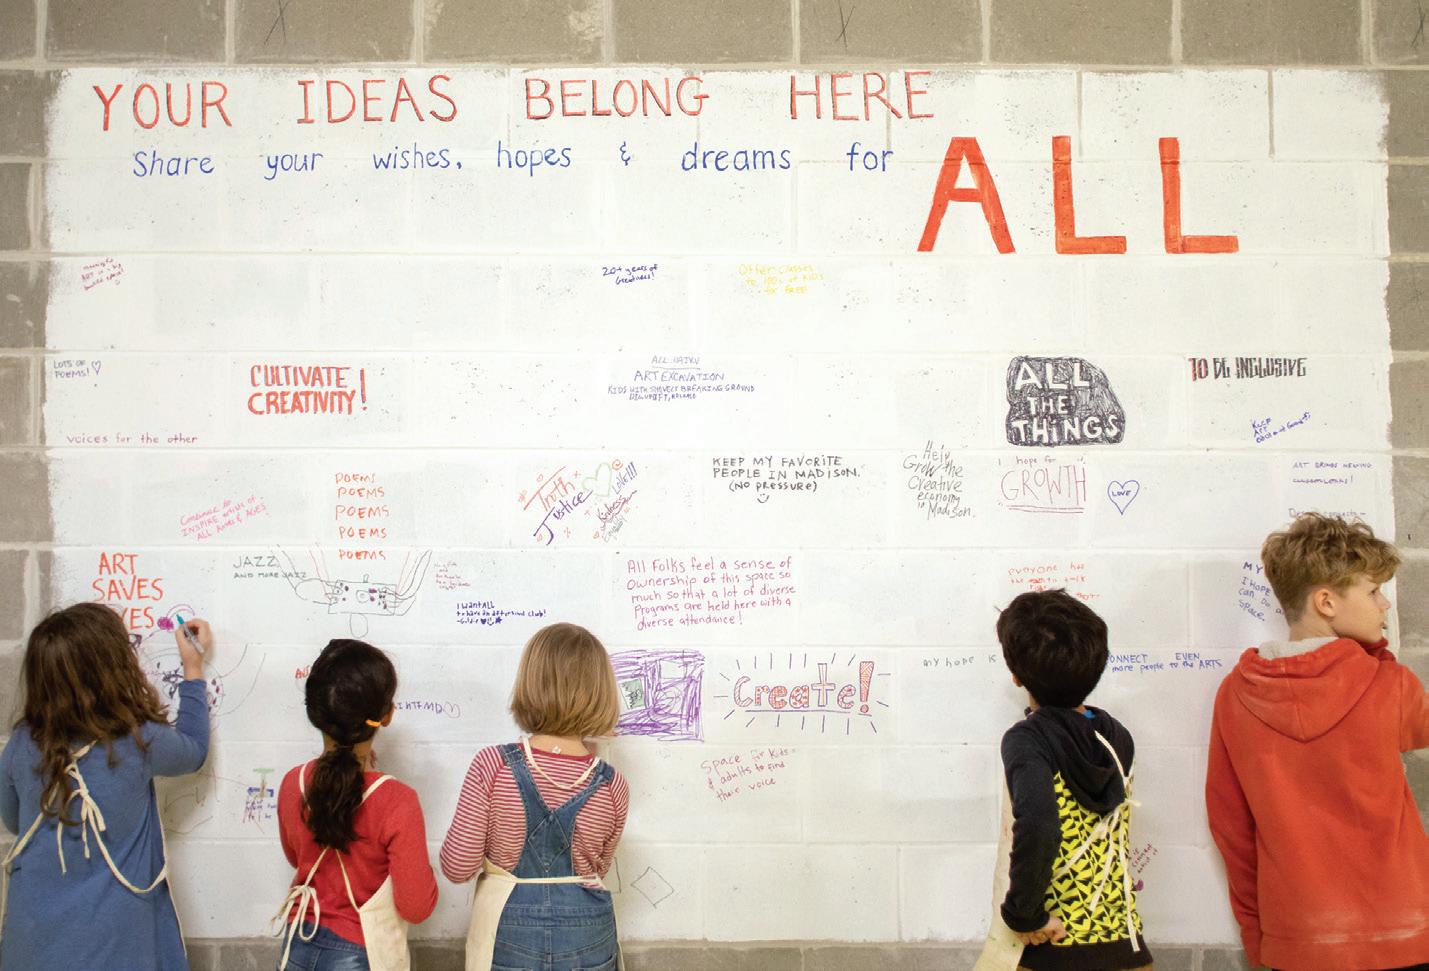 YOUR IDEAS BELONG HERE
Share your wishes, hopes & dreams for ALL
20+ years of
Greatness!
Offer classes
to 100% of KIDS
for FREE
LOTS OF
POEMS!
CULTIVATE
CREATIVITY!
ALL HAIKU
ART EXCAVATION
KIDS WITH SHOVELS BREAKING GROUND
ALL
THE
THiNGS
TO BE INCLUSIVE
voices for the other
POEMS
POEMS
POEMS
POEMS
POEMS
Truth
Justice
LOVE!!!
Kindness
KEEP MY FAVORITE
PEOPLE IN MADISON.
(NO PRESSURE)
Help
Grow the
Creative
economy
in Madison.
I hope for
GROWTH
LOVE
Continue to
INSPIRE artists of
ALL kinds & AGES
ART
SAVES
JAZZ
AND MORE JAZZ
I want ALL
to have an afterschool club!
All Folks feel a sense of
ownership of this space so
much so that a lot of diverse
Programs are held here with a
diverse attendance!
everyone has
MY
I HOPE
can Do
Space.
Create!
MY HOPE IS
CONNECT EVEN
more people to the ARTS
Space for kids
& adults to find
their voice